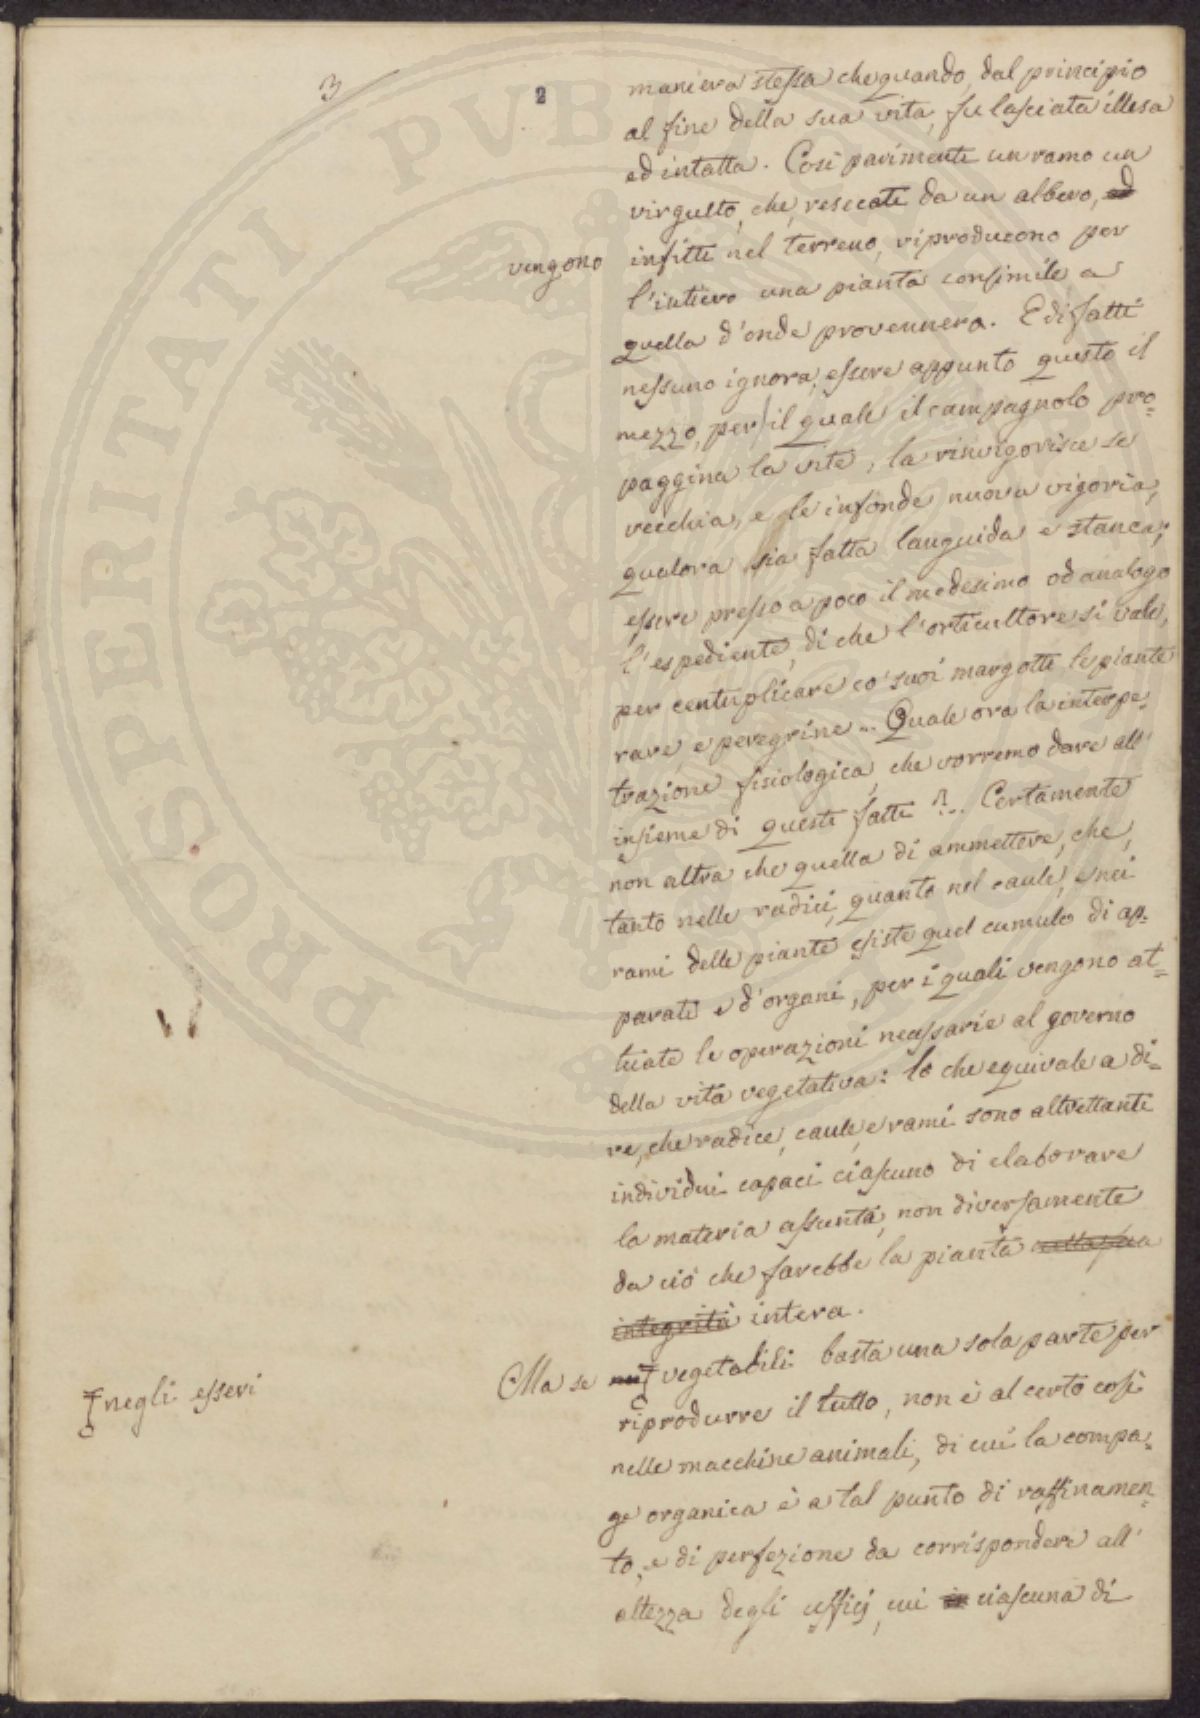 3
2
maniera stessa che quando, dal principio
al fine della sua vita, fu lasciata illesa
ed intatta. Così parimente un ramo un
virgulto, che, resecati da un albero, ed
vengono
infitti nel terreno, riproducono per
l'intiero una pianta consimile a
quella d'onde provennero. E di fatti
nessuno ignora, essere appunto questo il
mezzo, per il quale il campagnolo pro=
paggina la vite, la rinvigorisce se
vecchia, e le infonde nuova vigoria,
qualora sia fatta languida e stanca;
essere presso a poco il medesimo od analogo
l'espediente, di che l'orticultore si vale,
per centuplicare co' suoi margotti le piante
rare, e peregrine... Quale ora la interpe=
trazione fisiologica, che vorremo dare all'
insieme di questi fatti?... Certamente
non altra che quella di ammettere, che,
tanto nelle radici, quanto nel caule, e nei
rami delle piante esiste quel cumulo di ap=
parati e d'organi, per i quali vengono at=
tuate le operazioni necessarie al governo
della vita vegetativa: lo che equivale a di=
re, che radice, caule, e rami sono altrettanti
individui capaci ciascuno di elaborare
la materia assunta, non diversamente
da ciò che farebbe la pianta nella sua
integrità intera.
Ma se nei vegetabili basta una sola parte per
negli esseri
riprodurre il tutto, non è al certo così
nelle macchine animali, di cui la compa=
ge organica è a tal punto di raffinamen=
to, e di perfezione da corrispondere all'
altezza degli ufficj, cui in ciascuna di
PVBLICAE
PROSPERITATI